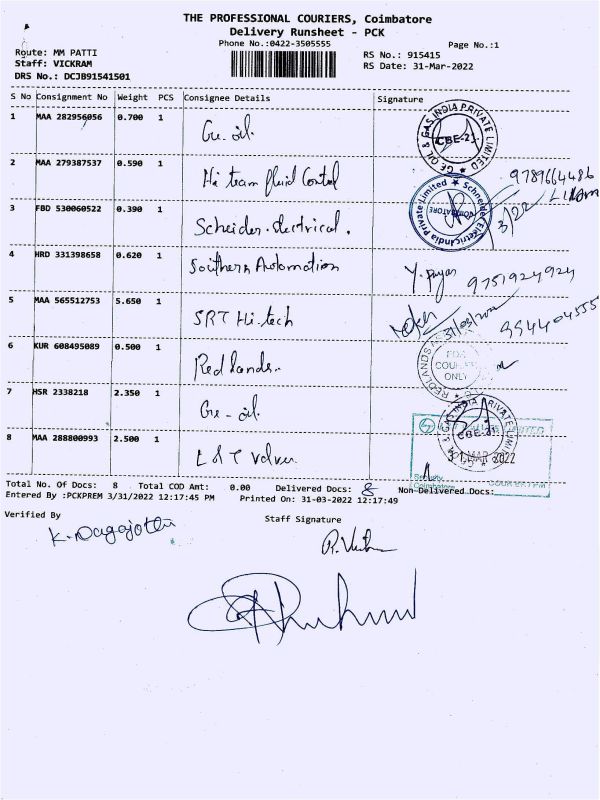 THE PROFESSIONAL COURIERS, Coimbatore
Delivery Runsheet - PCK
Phone No.:0422-3505555
Page No.:1
Route: MM PATTI
Staff: VICKRAM
DRS No.: DCJB91541501
RS No.: 915415
RS Date: 31-Mar-2022
S No Consignment No Weight PCS Consignee Details Signature
1 MAA 282956056 0.700 1 Ge. oil.
GE OIL & GAS INDIA PRIVATE LIMITED CBE-21
2 MAA 279387537 0.590 1 Hi team fluid Control
9789664486
3 FBD 530060522 0.390 1 Scheider. electrical.
Schneider Electric India Private Limited COIMBATORE
4 HRD 331398658 0.620 1 Southern Automation
9751924924
5 MAA 565512753 5.650 1 SRT Hi-tech
31/03/2022
6 KUR 608495089 0.500 1 Redlands.
REDLANDS
FOR COURIER ONLY
7 HSR 2338218 2.350 1 Ge-oil.
GE OIL & GAS INDIA PRIVATE LIMITED CBE-21
8 MAA 288800993 2.500 1 L & T valves
31 MAR 2022
Security
Coimbatore
COURIER
Total No. Of Docs: 8 Total COD Amt: 0.00 Delivered Docs: 8 Non-Delivered Docs:
Entered By :PCKPREM 3/31/2022 12:17:45 PM Printed On: 31-03-2022 12:17:49
Verified By
Staff Signature